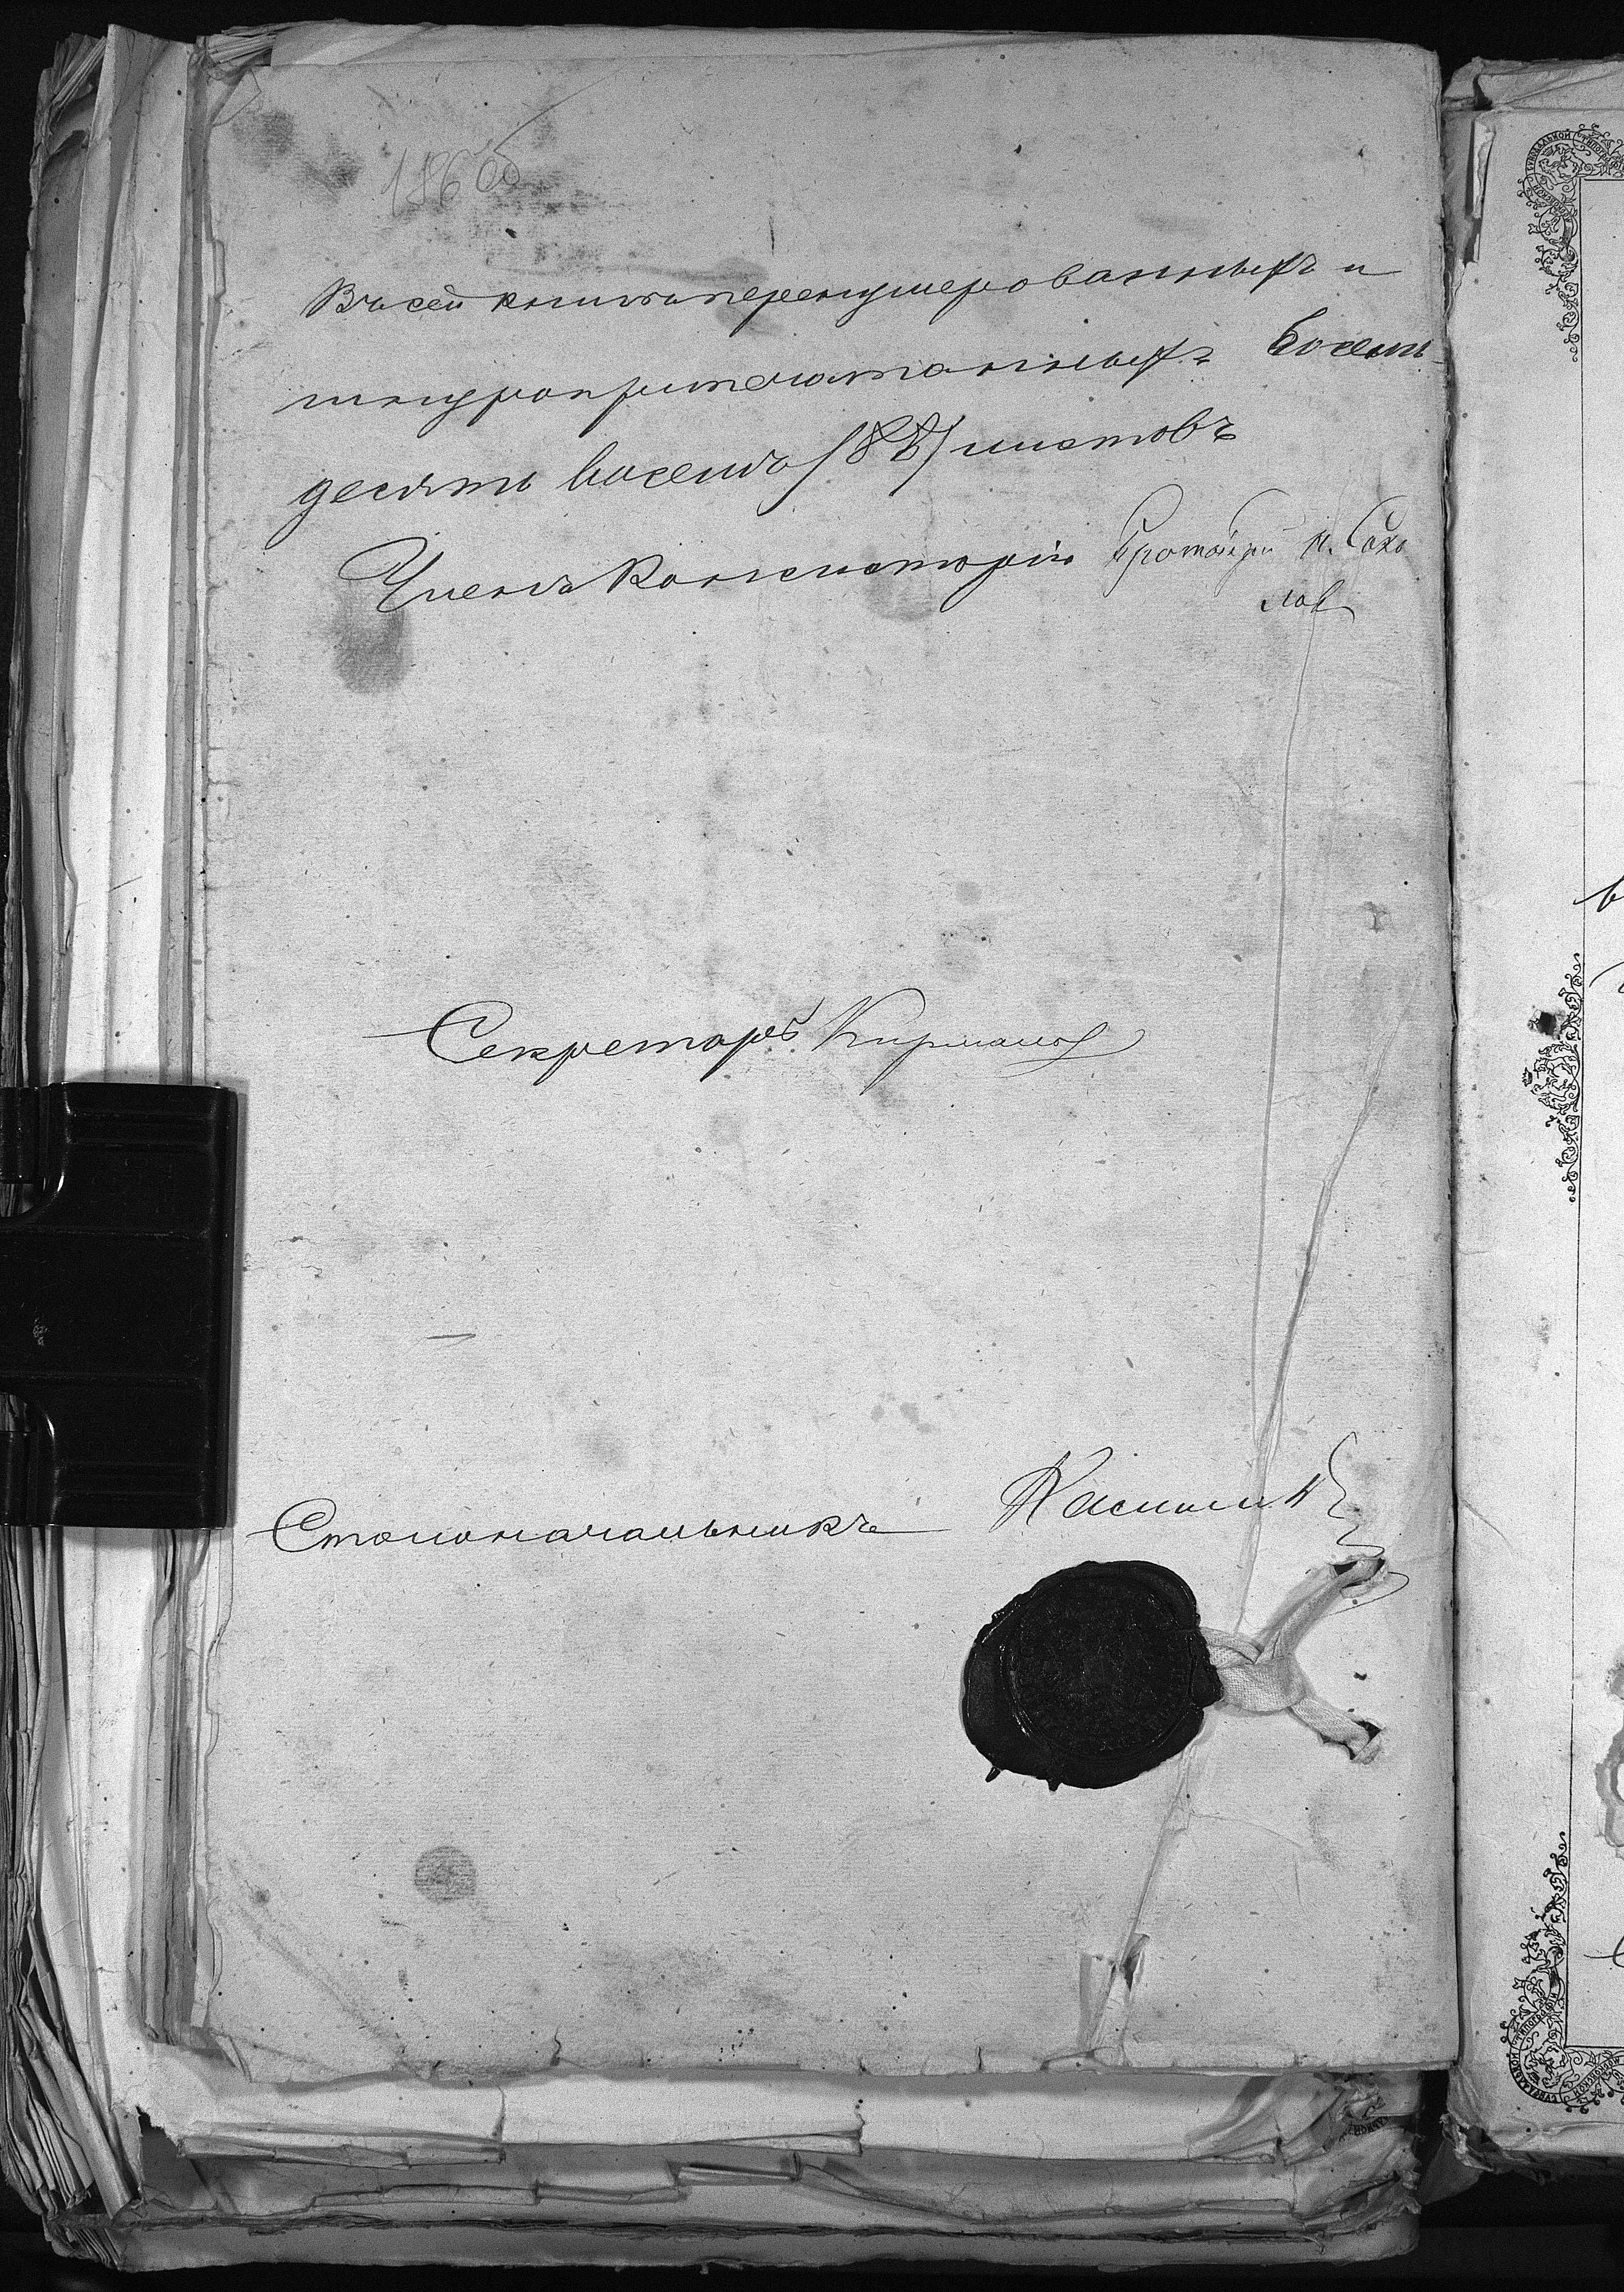 186 об
Въ сей книгѣ перенумерованныхъ и
шнуроприпечатанныхъ Восемь-
десятъ восемь /88/ листовъ
Членъ Консисторіи Протоіерей П. Соко
лов
Секретарь
Столоначальникъ